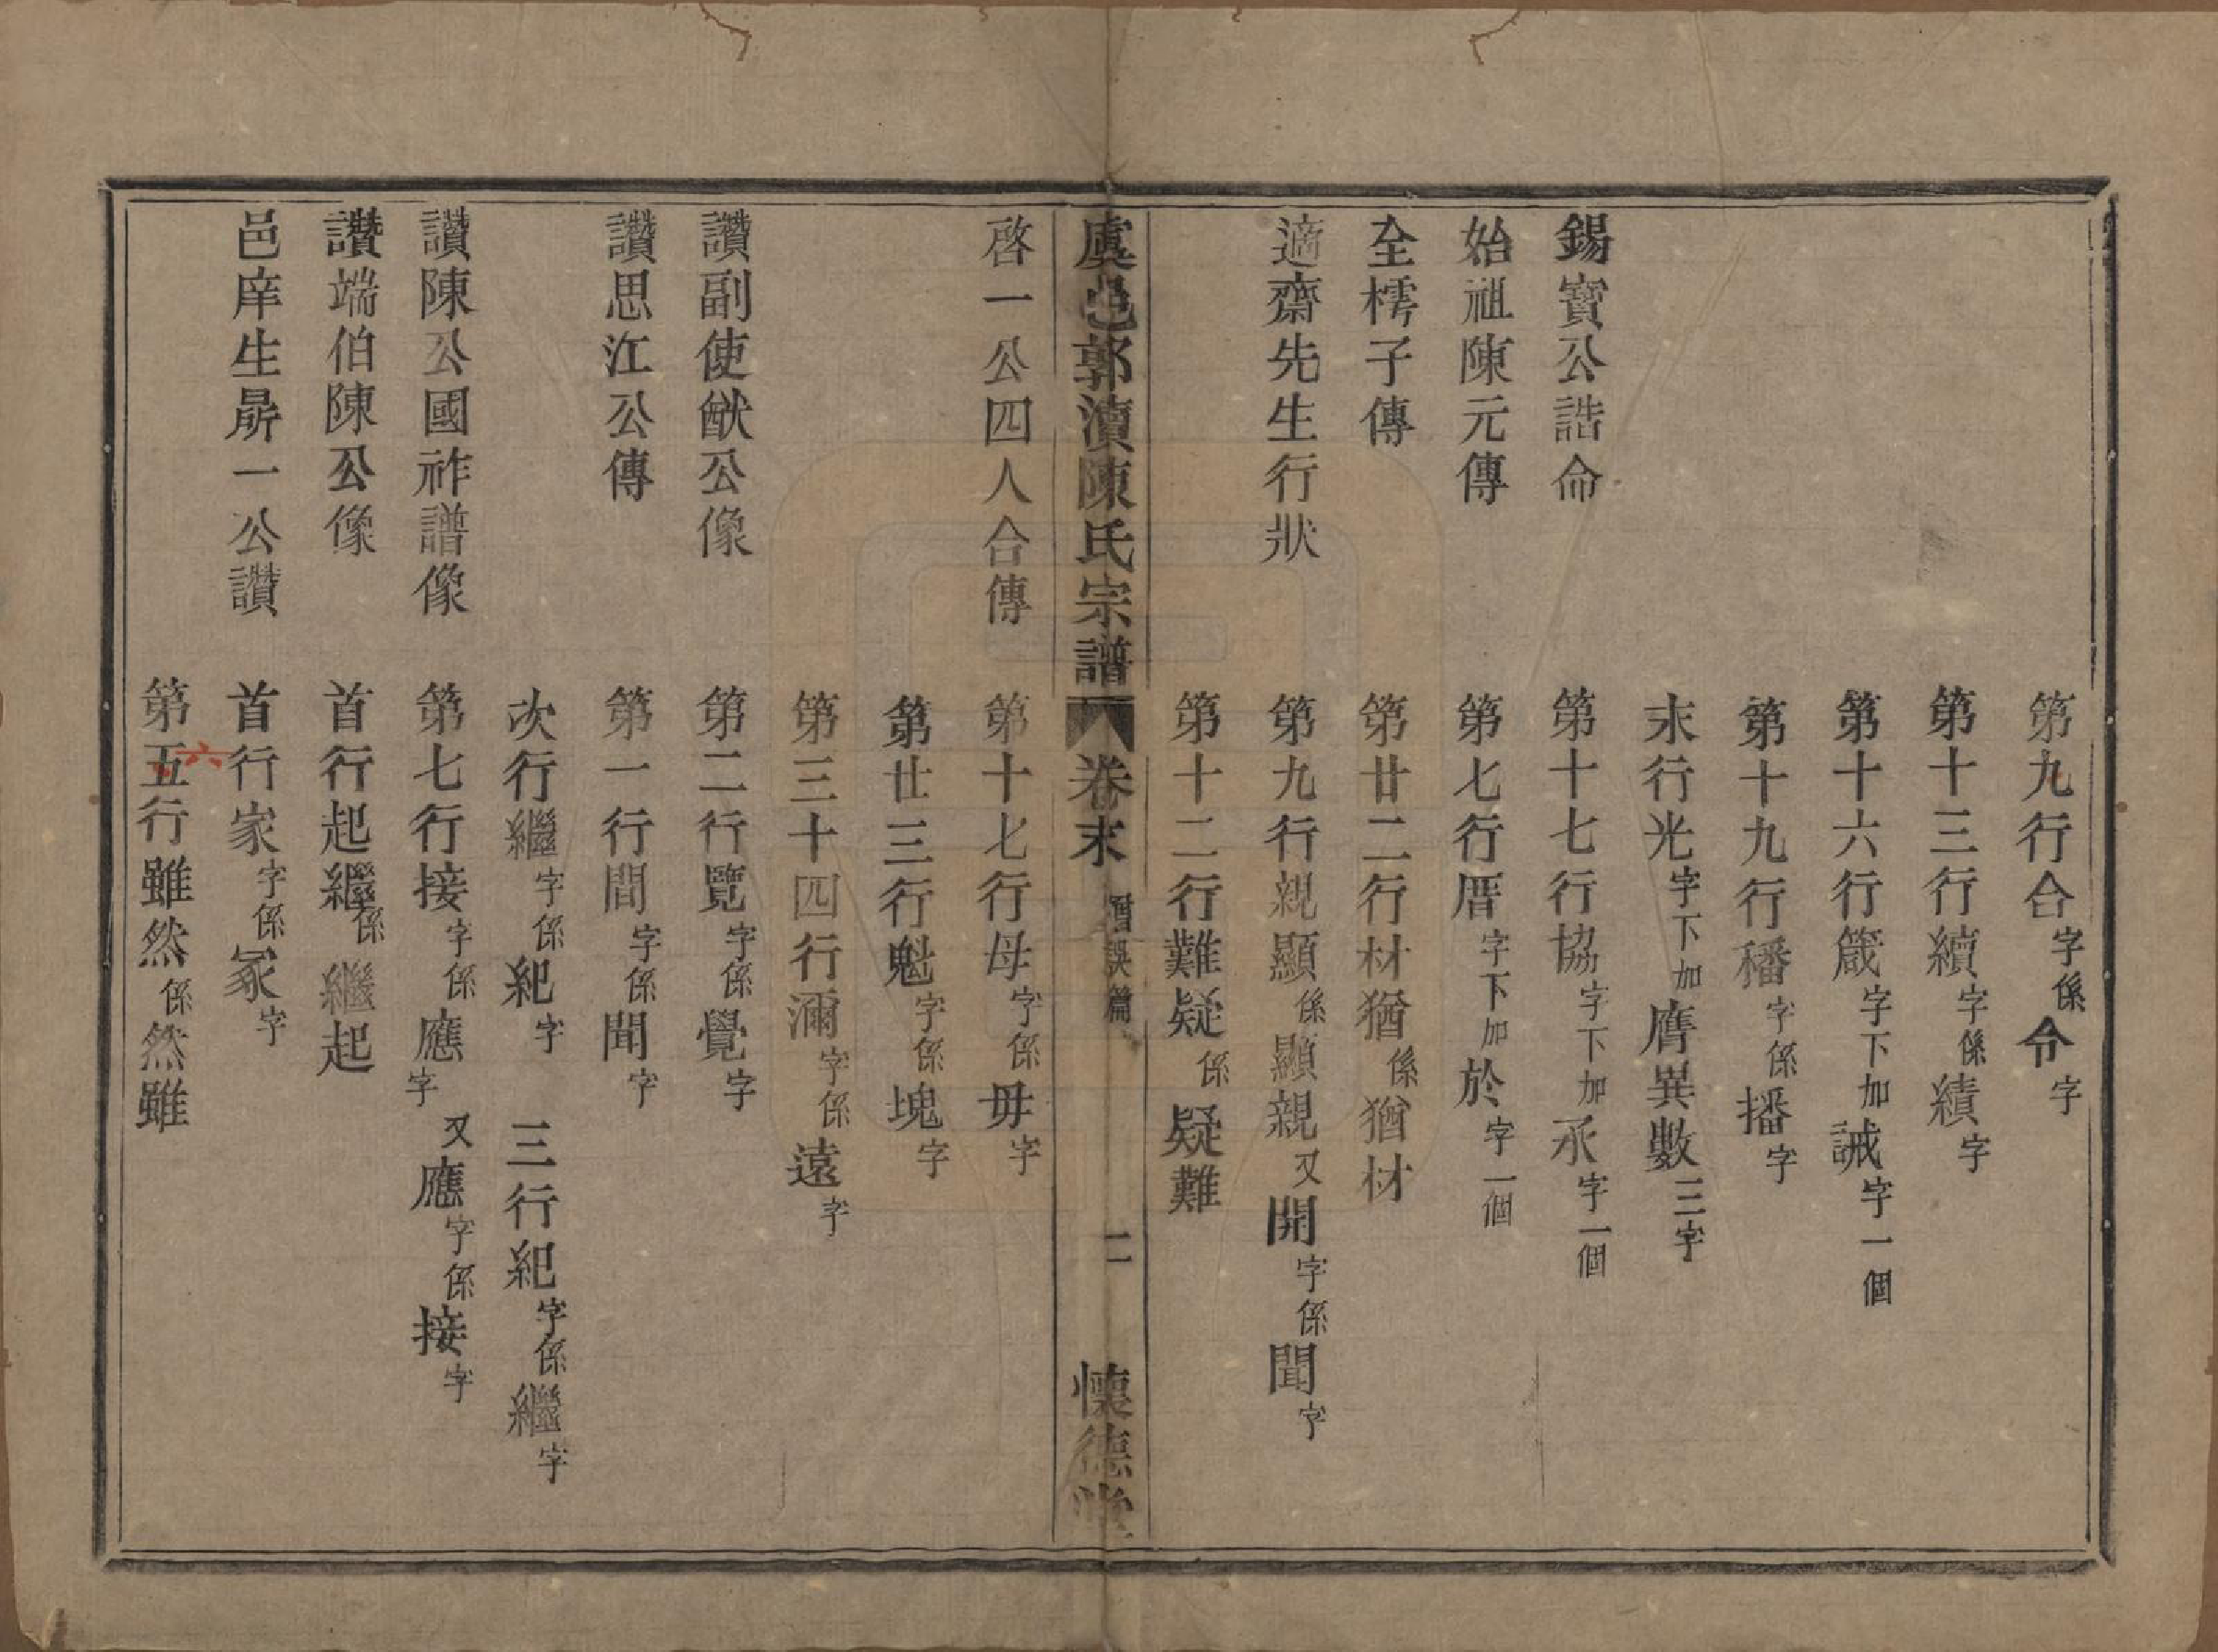 第九行合字係令字
第十三行續字係績字
第十六行箴字下加誡字一個
第十九行穚字係播字
末行光字下加膺異數三字
錫寶公誥命　第十七行協字下加承字一個
始祖陳元傳　第七行厝字下加於字一個
全樗子傳　第廿二行材猶係猶材
適齋先生行狀　第九行親顯係顯親又開字係聞字
第十二行難疑係疑難
虞邑郭瀆陳氏宗譜　卷末　二　懷德堂
啓一公四人合傳　第十七行母字係毋字
第廿三行魁字係塊字
第三十四行瀰字係遠字
讚副使猷公像　第二行覽字係覺字
讚思江公傳　第一行間字係聞字
次行繼字係紀字　三行紀字係繼字
讚陳公國祚譜像　第七行接字係應字　又應字係接字
讚端伯陳公像　首行起繼係繼起
邑庠生昴一公讚　首行家字係冢字
第五行雖然係然雖
六